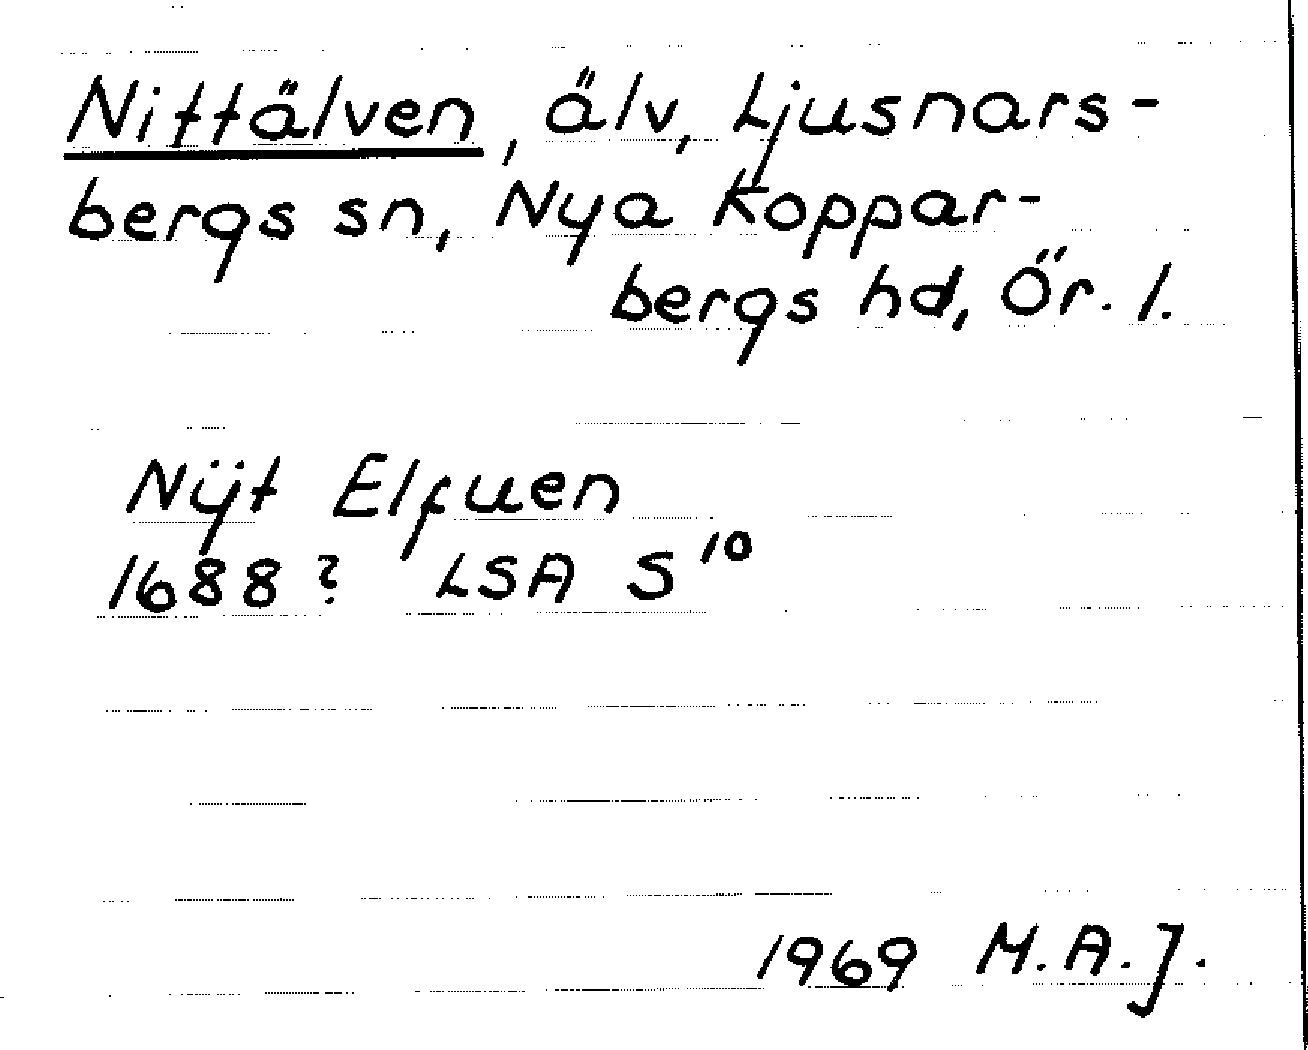 Nittälven, älv, Ljusnars-
bergs sn, Nya Koppar-
bergs hd, Ör. l.
Nÿt Elfuen
1688? LSA S¹⁰
1969 M.A.J.